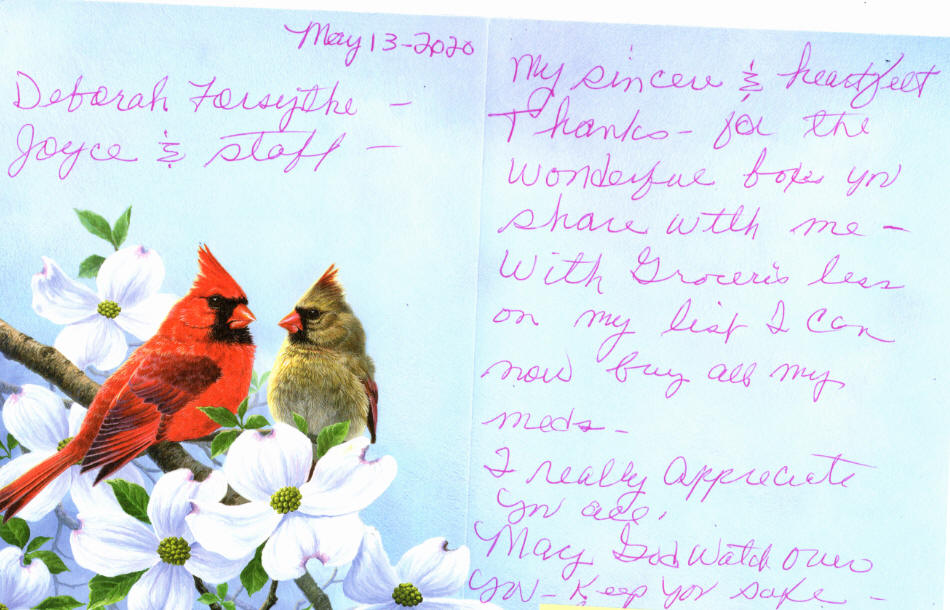 May 13-2020
Deborah Forsythe -
Joyce & staff -
My sincere & heartfelt
Thanks - for the
wonderful boxes you
share with me -
With Groceris less
on my list I can
now buy all my
meds -
I really appreciate
you all.
May God watch over
you - keep you safe -